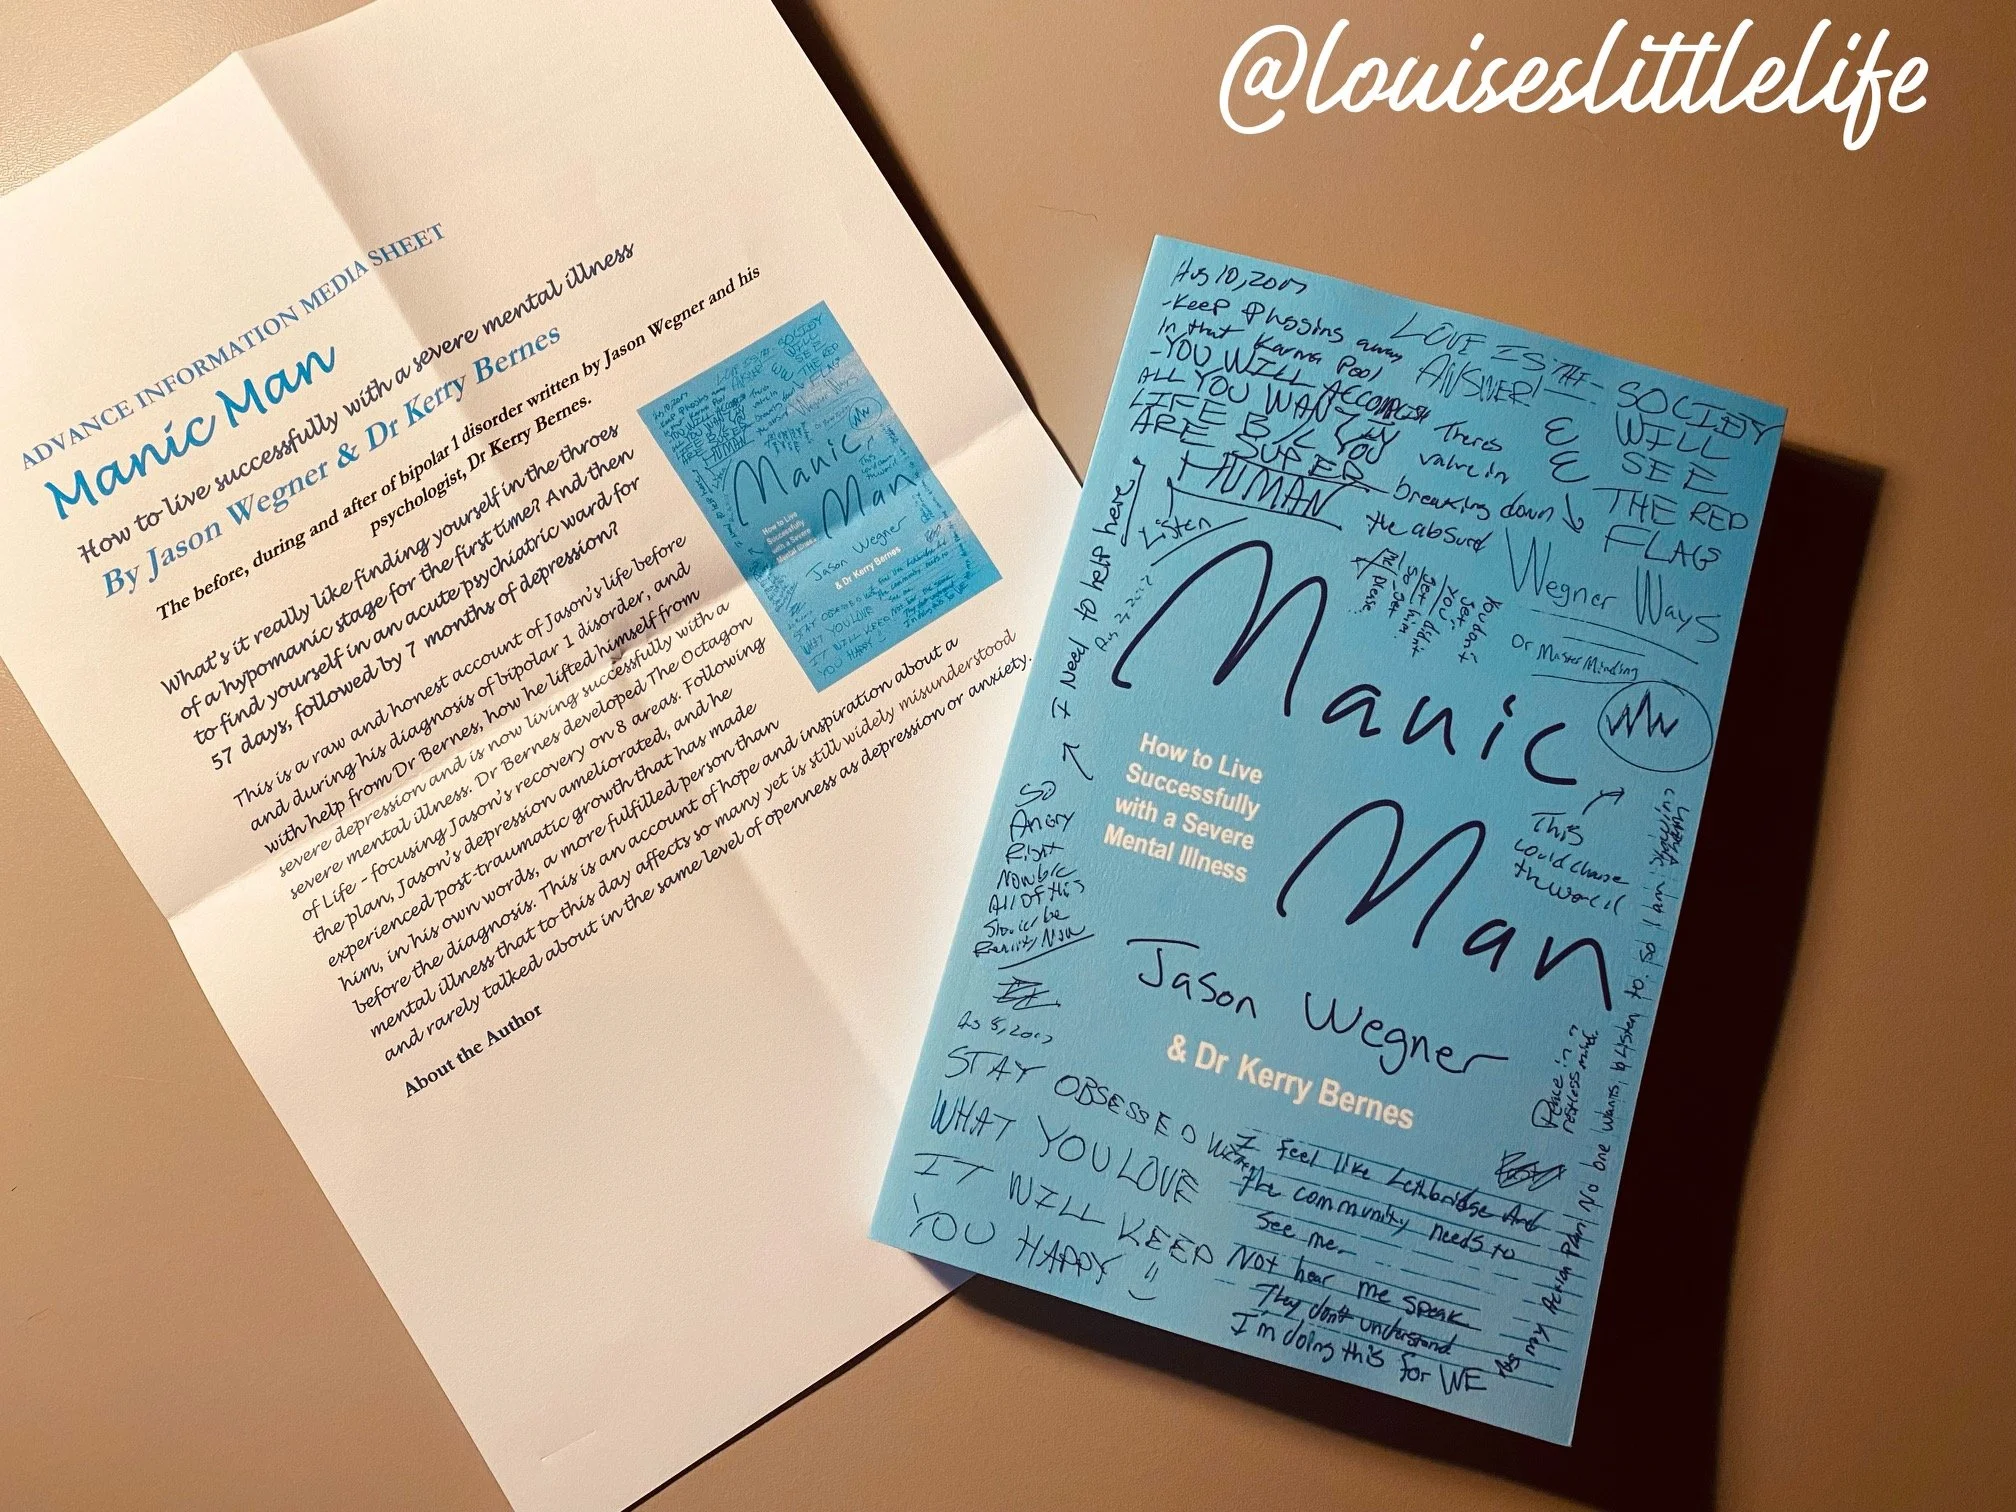 @louiseslittlelife
ADVANCE INFORMATION MEDIA SHEET
Manic Man
How to live successfully with a severe mental illness
By Jason Wegner & Dr Kerry Bernes
The before, during and after of bipolar 1 disorder written by Jason Wegner and his
psychologist, Dr Kerry Bernes.
What's it really like finding yourself in the throes
of a hypomanic stage for the first time? And then
to find yourself in an acute psychiatric ward for
57 days, followed by 7 months of depression?
This is a raw and honest account of Jason's life before
and during his diagnosis of bipolar 1 disorder, and
with help from Dr Bernes, how he lifted himself from
severe depression and is now living successfully with a
severe mental illness. Dr Bernes developed The Octagon
of Life - focusing Jason's recovery on 8 areas. Following
the plan, Jason's depression ameliorated, and he
experienced post-traumatic growth that has made
him, in his own words, a more fulfilled person than
before the diagnosis. This is an account of hope and inspiration about a
mental illness that to this day affects so many yet is still widely misunderstood
and rarely talked about in the same level of openness as depression or anxiety.
About the Author
Aug 10, 2017
-Keep Plugging away
In that Karma Pool
-YOU WILL ACCOMPLISH
ALL YOU WANT IN
LIFE B/C YOU
ARE SUPER
HUMAN
LOVE IS THE
ANSWER!
SOCIETY
WILL
SEE
THE RED
FLAG
Theres
value in
breaking down
the absurd
Listen
I Need to help here
You don't
get it
you didn't
get him
So let
me please
Wegner Ways
Or MasterMinding
Manic
Man
How to Live
Successfully
with a Severe
Mental Illness
This
could change
the world
So
Angry
Right
Now b/c
All of this
Should be
Reality Now
Jason Wegner
& Dr Kerry Bernes
Aug 5, 2017
STAY OBSESSED WITH
WHAT YOU LOVE
IT WILL KEEP
YOU HAPPY
I feel like Lethbridge And
the community needs to
see me.
Not hear me speak
They don't understand
I'm doing this for WE
Peace in?
restless mind.
No one wants to listen to. So I am